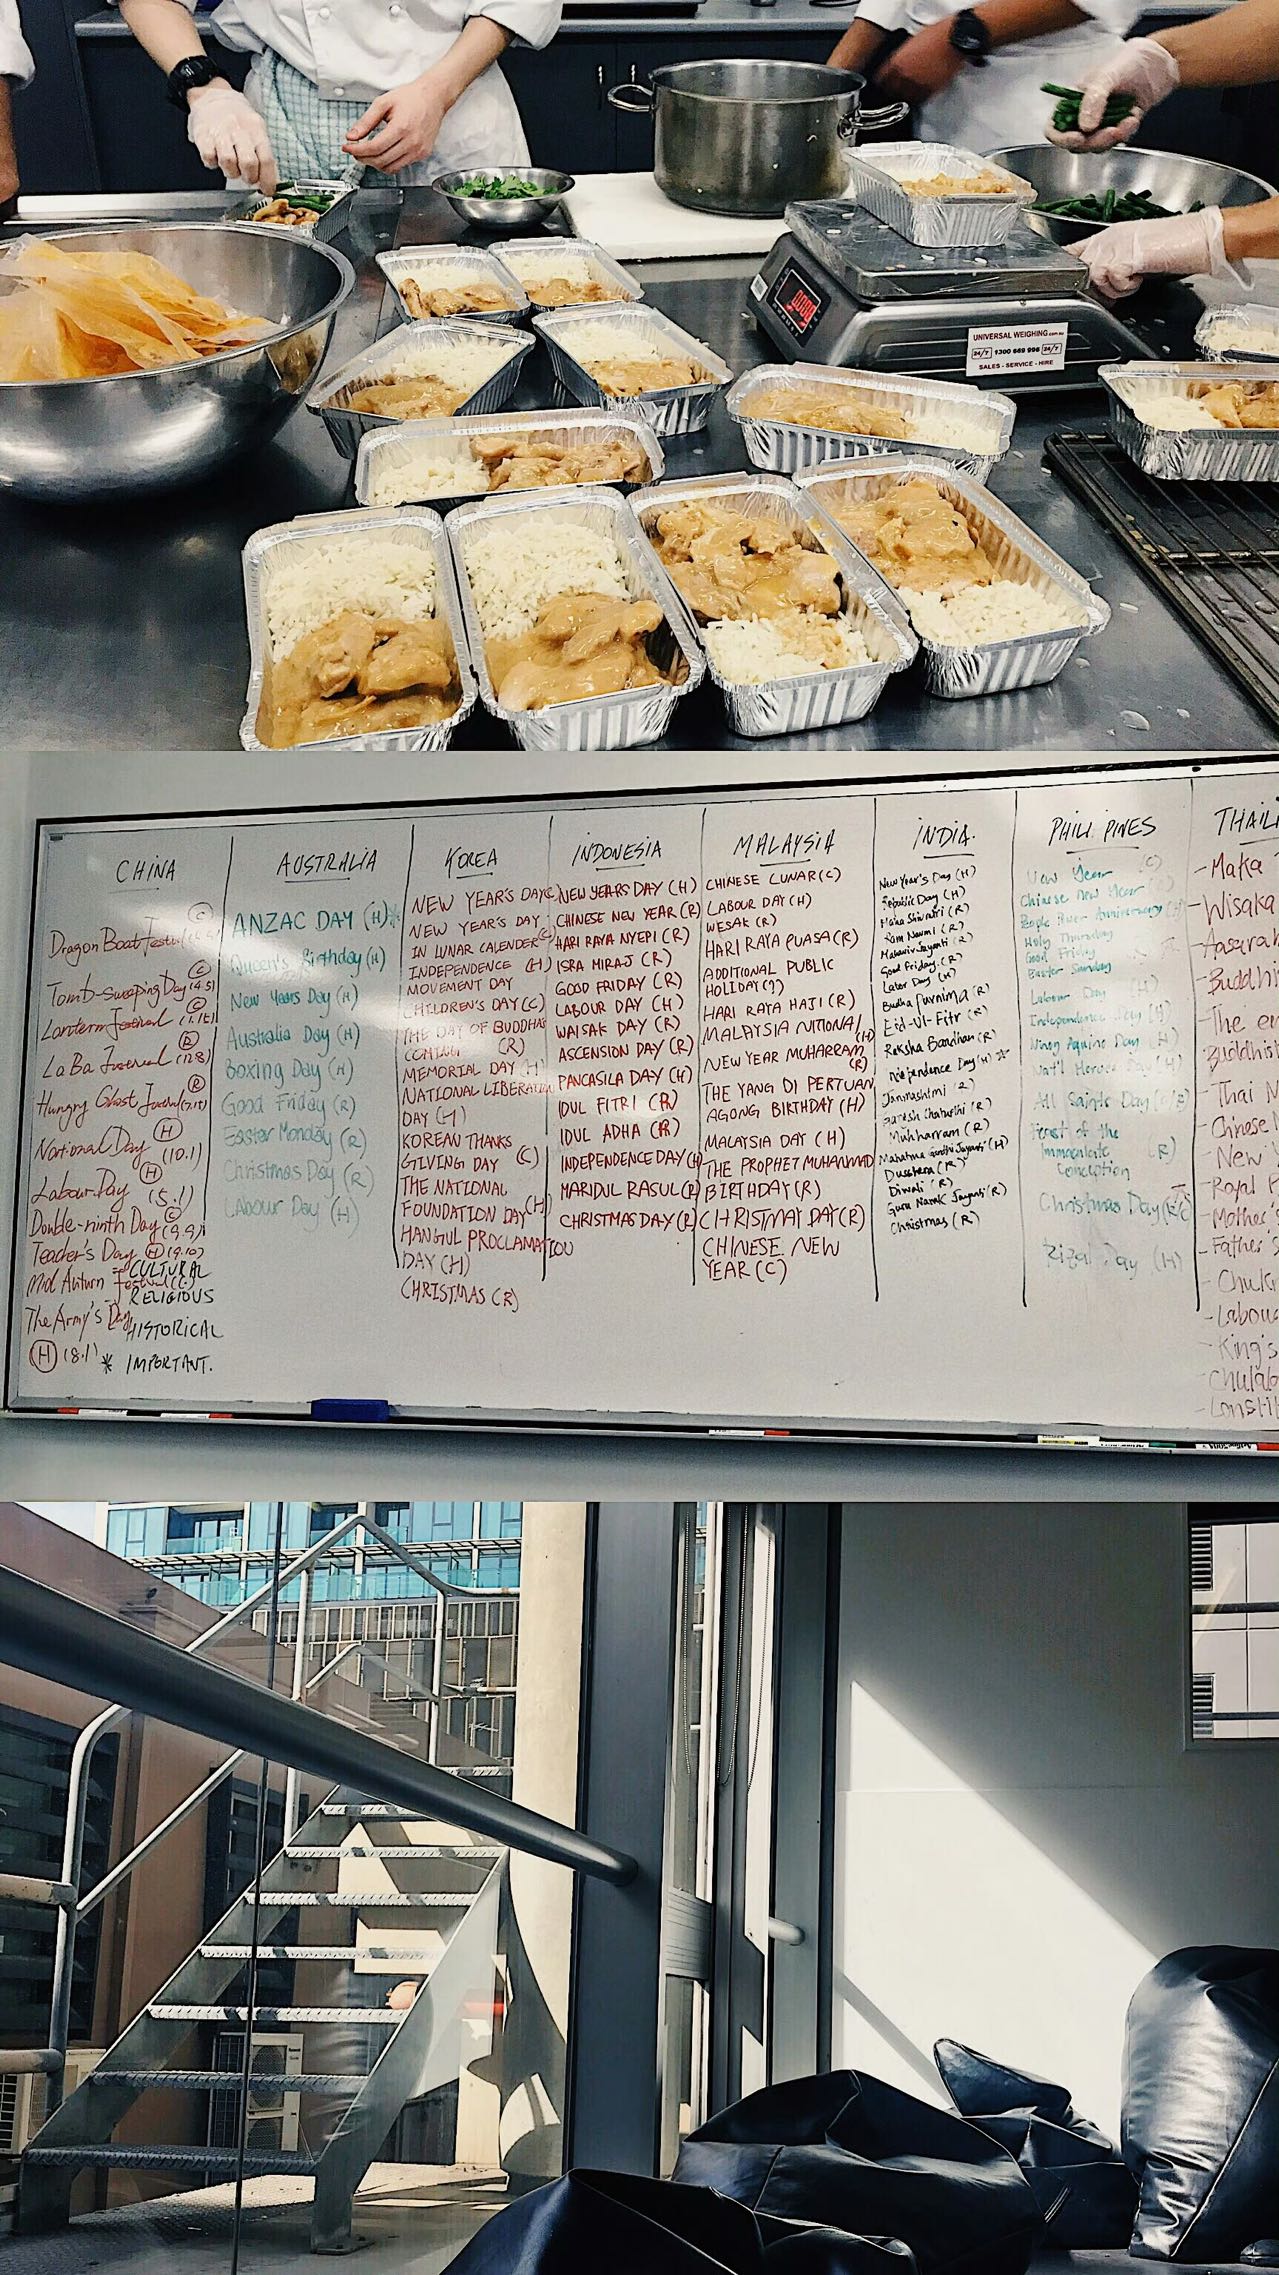 UNIVERSAL WEIGHING.com.au
24/7 1300 669 996 24/7
SALES - SERVICE - HIRE
CHINA
Dragon Boat
Tomb-sweeping Day (4.5)
La Ba (12.8)
Hungry Ghost (7.15)
National Day
(10.1)
Labour Day
(5.1)
Double-ninth Day (9.9)
Teacher's Day (H) (9.10)
Mid Autumn
The Army's Day
(H) (8.1)
CULTURAL
RELIGIOUS
HISTORICAL
* IMPORTANT.
AUSTRALIA
ANZAC DAY (H)*
Queen's Birthday (H)
New Years Day (H)
Australia Day (H)
Boxing Day (H)
Good Friday (R)
Easter Monday (R)
Christmas Day (R)
Labour Day (H)
KOREA
NEW YEAR'S DAY (C)
NEW YEAR'S DAY
IN LUNAR CALENDER (C)
INDEPENDENCE (H)
MOVEMENT DAY
CHILDREN'S DAY (C)
THE DAY OF BUDDHAS
COMING (R)
MEMORIAL DAY (H)
NATIONAL LIBERATION
DAY (H)
KOREAN THANKS
GIVING DAY (C)
THE NATIONAL
FOUNDATION DAY (H)
HANGUL PROCLAMATION
DAY (H)
CHRISTMAS (R)
INDONESIA
NEW YEARS DAY (H)
CHINESE NEW YEAR (R)
HARI RAYA NYEPI (R)
ISRA MIRAJ (R)
GOOD FRIDAY (R)
LABOUR DAY (H)
WAISAK DAY (R)
ASCENSION DAY (R)
PANCASILA DAY (H)
IDUL FITRI (R)
IDUL ADHA (R)
INDEPENDENCE DAY (H)
MARIDUL RASUL (R)
CHRISTMAS DAY (R)
MALAYSIA
CHINESE LUNAR (C)
LABOUR DAY (H)
WESAK (R)
HARI RAYA PUASA (R)
ADDITIONAL PUBLIC
HOLIDAY (?)
HARI RAYA HAJI (R)
MALAYSIA NATIONAL
(H)
NEW YEAR MUHARRAM
(R)
THE YANG DI PERTUAN
AGONG BIRTHDAY (H)
MALAYSIA DAY (H)
THE PROPHET MUHAMMAD
BIRTHDAY (R)
CHRISTMAS DAY (R)
CHINESE NEW
YEAR (C)
INDIA
New Year's Day (H)
Republic Day (H)
Maha Shivratri (R)
Ram Navmi (R)
Mahavir Jayanti (R)
Good Friday (R)
Labor Day (H)
Budha Purnima (R)
Eid-Ul-Fitr (R)
Raksha Bandhan (R)
Independence Day (H) *
Janmashtmi (R)
Ganesh Chaturthi (R)
Muhharram (R)
Mahatma Gandhi Jayanti (H)
Dusshera (R)
Diwali (R)
Guru Nanak Jayanti (R)
Christmas (R)
PHILIPPINES
New Year (C)
Chinese New Year
Holy Thursday
Good Friday
Easter Sunday
Labour Day (H)
Independence Day (H)
Ninoy Aquino Day (H)
Nat'l Heroes Day (H)
All Saints Day
Feast of the
Immaculate (R)
Conception
Christmas Day
Rizal Day (H)
THAIL
- Maka
- Wisaka
- Buddhi
- The
Buddhist
- Thai N
- Chinese
- New Y
- Royal P
- Mother's
- Father's
- Chula
- Labou
- King's